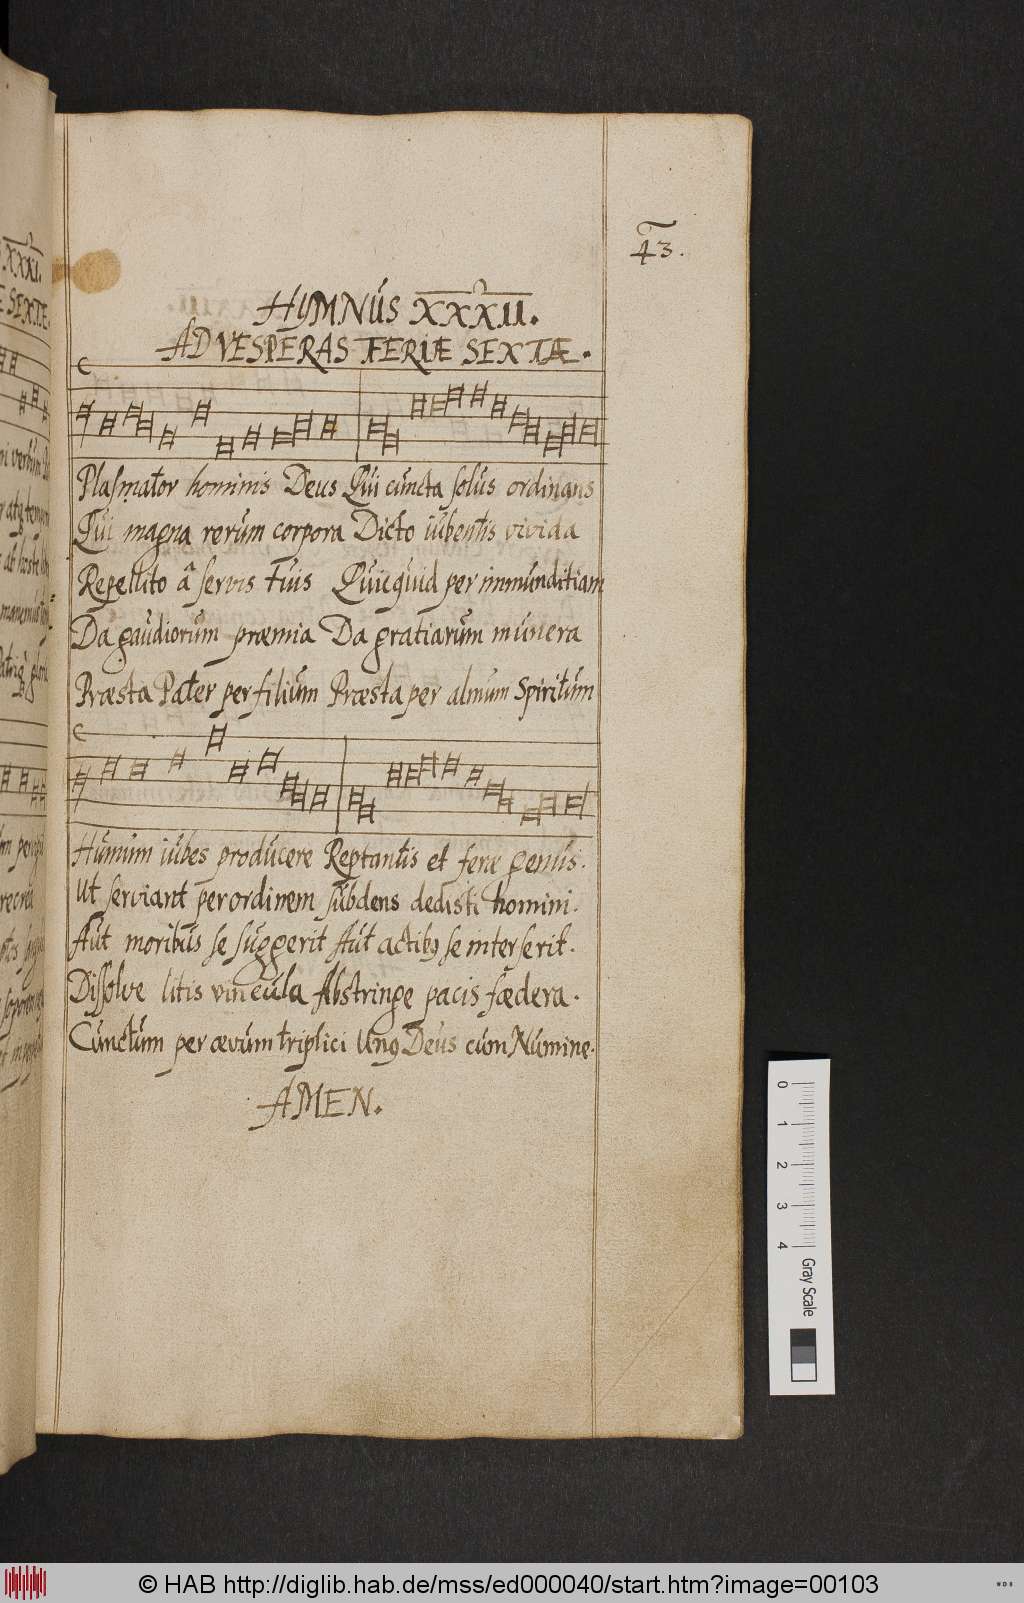 43.
HYMNUS XXXII.
AD VESPERAS FERIÆ SEXTÆ.
Plasmator hominis Deus Qui cuncta solus ordinans
Qui magna rerum corpora Dicto iubentis vivida
Repellito â servis Tuis Quicquid per immunditiam
Da gaudiorum præmia Da gratiarum munera
Præsta Pater per filium Præsta per almum Spiritum
Humum iubes producere Reptantis et feræ genus.
Ut serviant per ordinem subdens dedisti homini.
Aut moribus se suggerit Aut actibꝰ se interserit.
Dissolve litis vincula Abstringe pacis fædera.
Cunctum per ævum triplici Unꝰ Deus cum Numine.
AMEN.
0 1 2 3 4 Gray Scale
© HAB http://diglib.hab.de/mss/ed000040/start.htm?image=00103